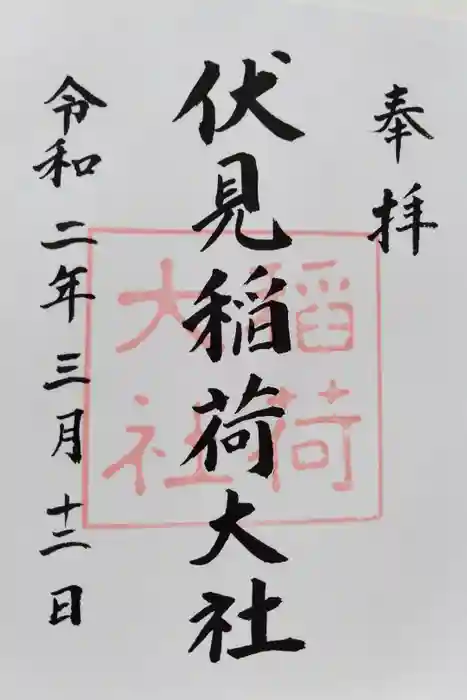 奉拝
伏見稲荷大社
稲荷
大社
令和二年三月十二日